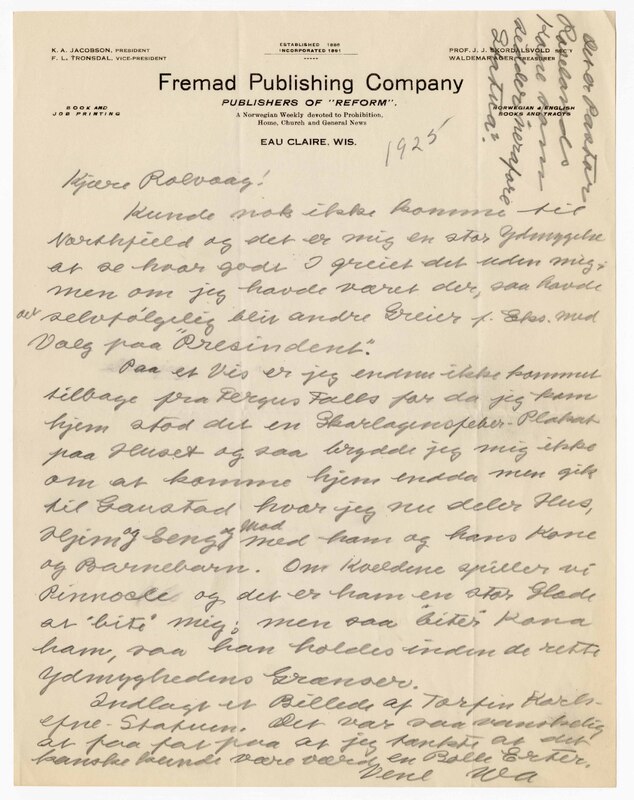 K. A. JACOBSON, PRESIDENT
F. L. TRONSDAL, VICE-PRESIDENT
ESTABLISHED 1886
INCORPORATED 1891
PROF. J. J. SKORDALSVOLD SEC'Y
WALDEMAR AGER, TREASURER
Fremad Publishing Company
PUBLISHERS OF "REFORM".
BOOK AND
JOB PRINTING
A Norwegian Weekly devoted to Prohibition,
Home, Church and General News
NORWEGIAN & ENGLISH
BOOKS AND TRACTS
EAU CLAIRE, WIS.
1925
Pastor
Roselands
Kone som
Statua?
Kjære Rolvaag!
Kunde nok ikke komme til
Northfield og det er mig en stor Ydmygelse
at se hvor godt I greiet det uden mig;
men om jeg havde været der, saa havde
det selvfølgelig blit andre Greier f. Eks. med
Valg paa "Presindent".
Paa et Vis er jeg endnu ikke kommet
tilbage fra Fergus Falls for da jeg kom
hjem stod det en Skarlagensfeber-Plakat
paa Huset og saa brydde jeg mig ikke
om at komme hjem endda men gik
til Gaustad hvor jeg nu deler Hus,
Hjem og Seng og Mad med ham og hans Kone
og Barnebarn. Om Kveldene spiller vi
Pinnocle og det er ham en stor Glæde
at "bite" mig; men saa "biter" Kona
ham, saa han holdes inden de rette
Ydmyghedens Grænser.
Indlagt et Billede af Torfin Karls-
efne-Statuen. Det var saa vanskelig
at faa fat paa at jeg tænkte at det
kanske kunde være værd en Bolle Erter.
Venl Wa